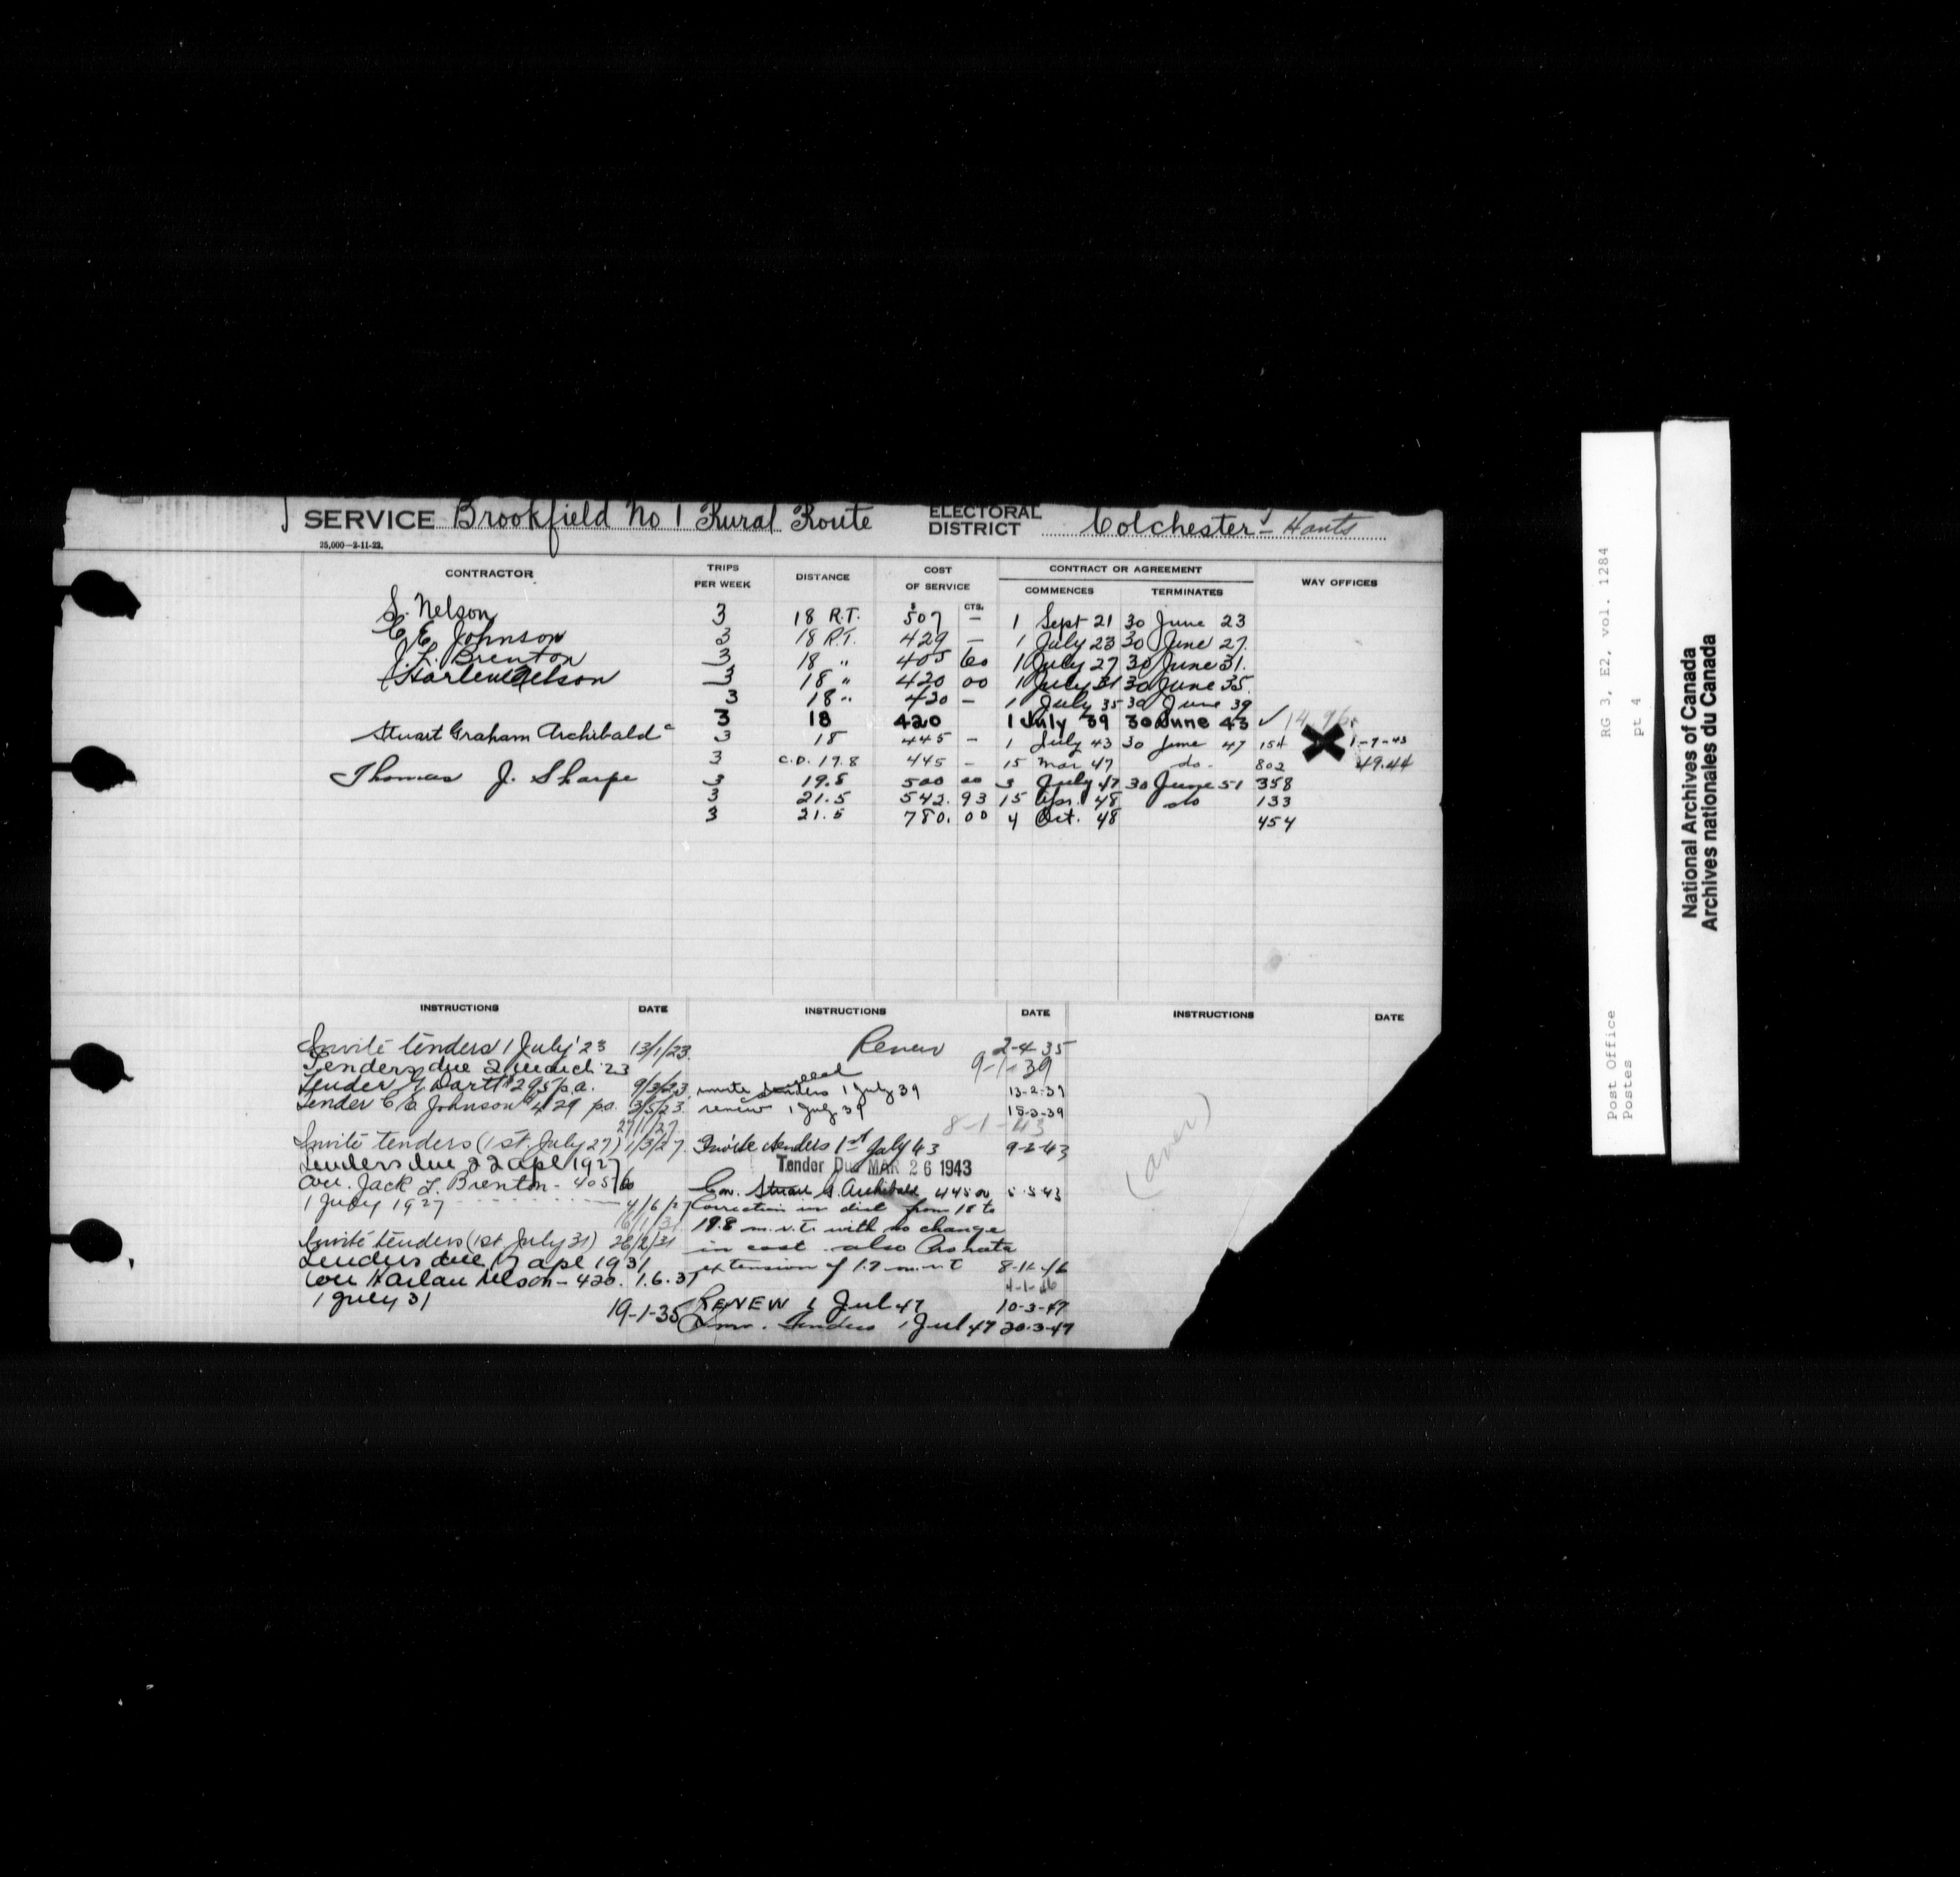 SERVICE Brookfield No 1 Rural Route ELECTORAL DISTRICT Colchester - Hants
25,000—2-11-22.
CONTRACTOR TRIPS PER WEEK DISTANCE COST OF SERVICE CONTRACT OR AGREEMENT WAY OFFICES
COMMENCES TERMINATES
$ CTS.
S. Nelson 3 18 R.T. 507 — 1 Sept 21 30 June 23
C. E. Johnson 3 18 R.T. 429 — 1 July 23 30 June 27.
J. L. Brenton 3 18 " 405 60 1 July 27 30 June 31.
Harlan Nelson 3 18 " 420 00 1 July 31 30 June 35.
3 18 " 420 — 1 July 35 30 June 39
3 18 420 1 July 39 30 June 43 ✓
Stuart Graham Archibald 3 18 445 — 1 July 43 30 June 47 154 1-7-43
3 C.D. 19.8 445 — 15 Mar 47 do. 802 49.44
Thomas J. Sharpe 3 19.8 500 00 3 July 47 30 June 51 358
3 21.5 542. 93 15 Apr. 48 do 133
3 21.5 780. 00 4 Oct. 48 454
INSTRUCTIONS DATE
Invite tenders 1 July '23 13/1/23.
Tenders due 2 March '23
Tender G. Dartt $295 p.a. 9/3/23.
Tender C. E. Johnson $429 pa. 3/5/23.
27/1/27.
Invite tenders (1st. July 27) 1/3/27.
Tenders due 22 apl 1927
Con. Jack L. Brenton - 405 60
1 July 1927 4/6/27
16/1/31
Invite tenders (1st July 31) 26/2/31
Tenders due 17 apl 1931
Con Harlan Nelson - 420. 1.6.31
1 July 31
19-1-35
INSTRUCTIONS DATE
Renew 2-4-35
9-1-39
invite tenders 1 July 39 13-2-39
renew 1 July 39 15-3-39
8-1-43
Invite tenders 1st July 43 9-2-43
Tender Due MAR 26 1943
Con. Stuart G. Archibald 445 00 5-5-43
Correction in dist from 18 to
19.8 m.r.t. with no change
in cost. also Pro rata
extension of 1.7 m.r.t 8-11-46
4-1-46
RENEW 1 Jul 47 10-3-47
Inv. Tenders 1 Jul 47 20-3-47
INSTRUCTIONS DATE
(over)
Post Office RG 3, E2, vol. 1284
Postes pt 4
National Archives of Canada
Archives nationales du Canada